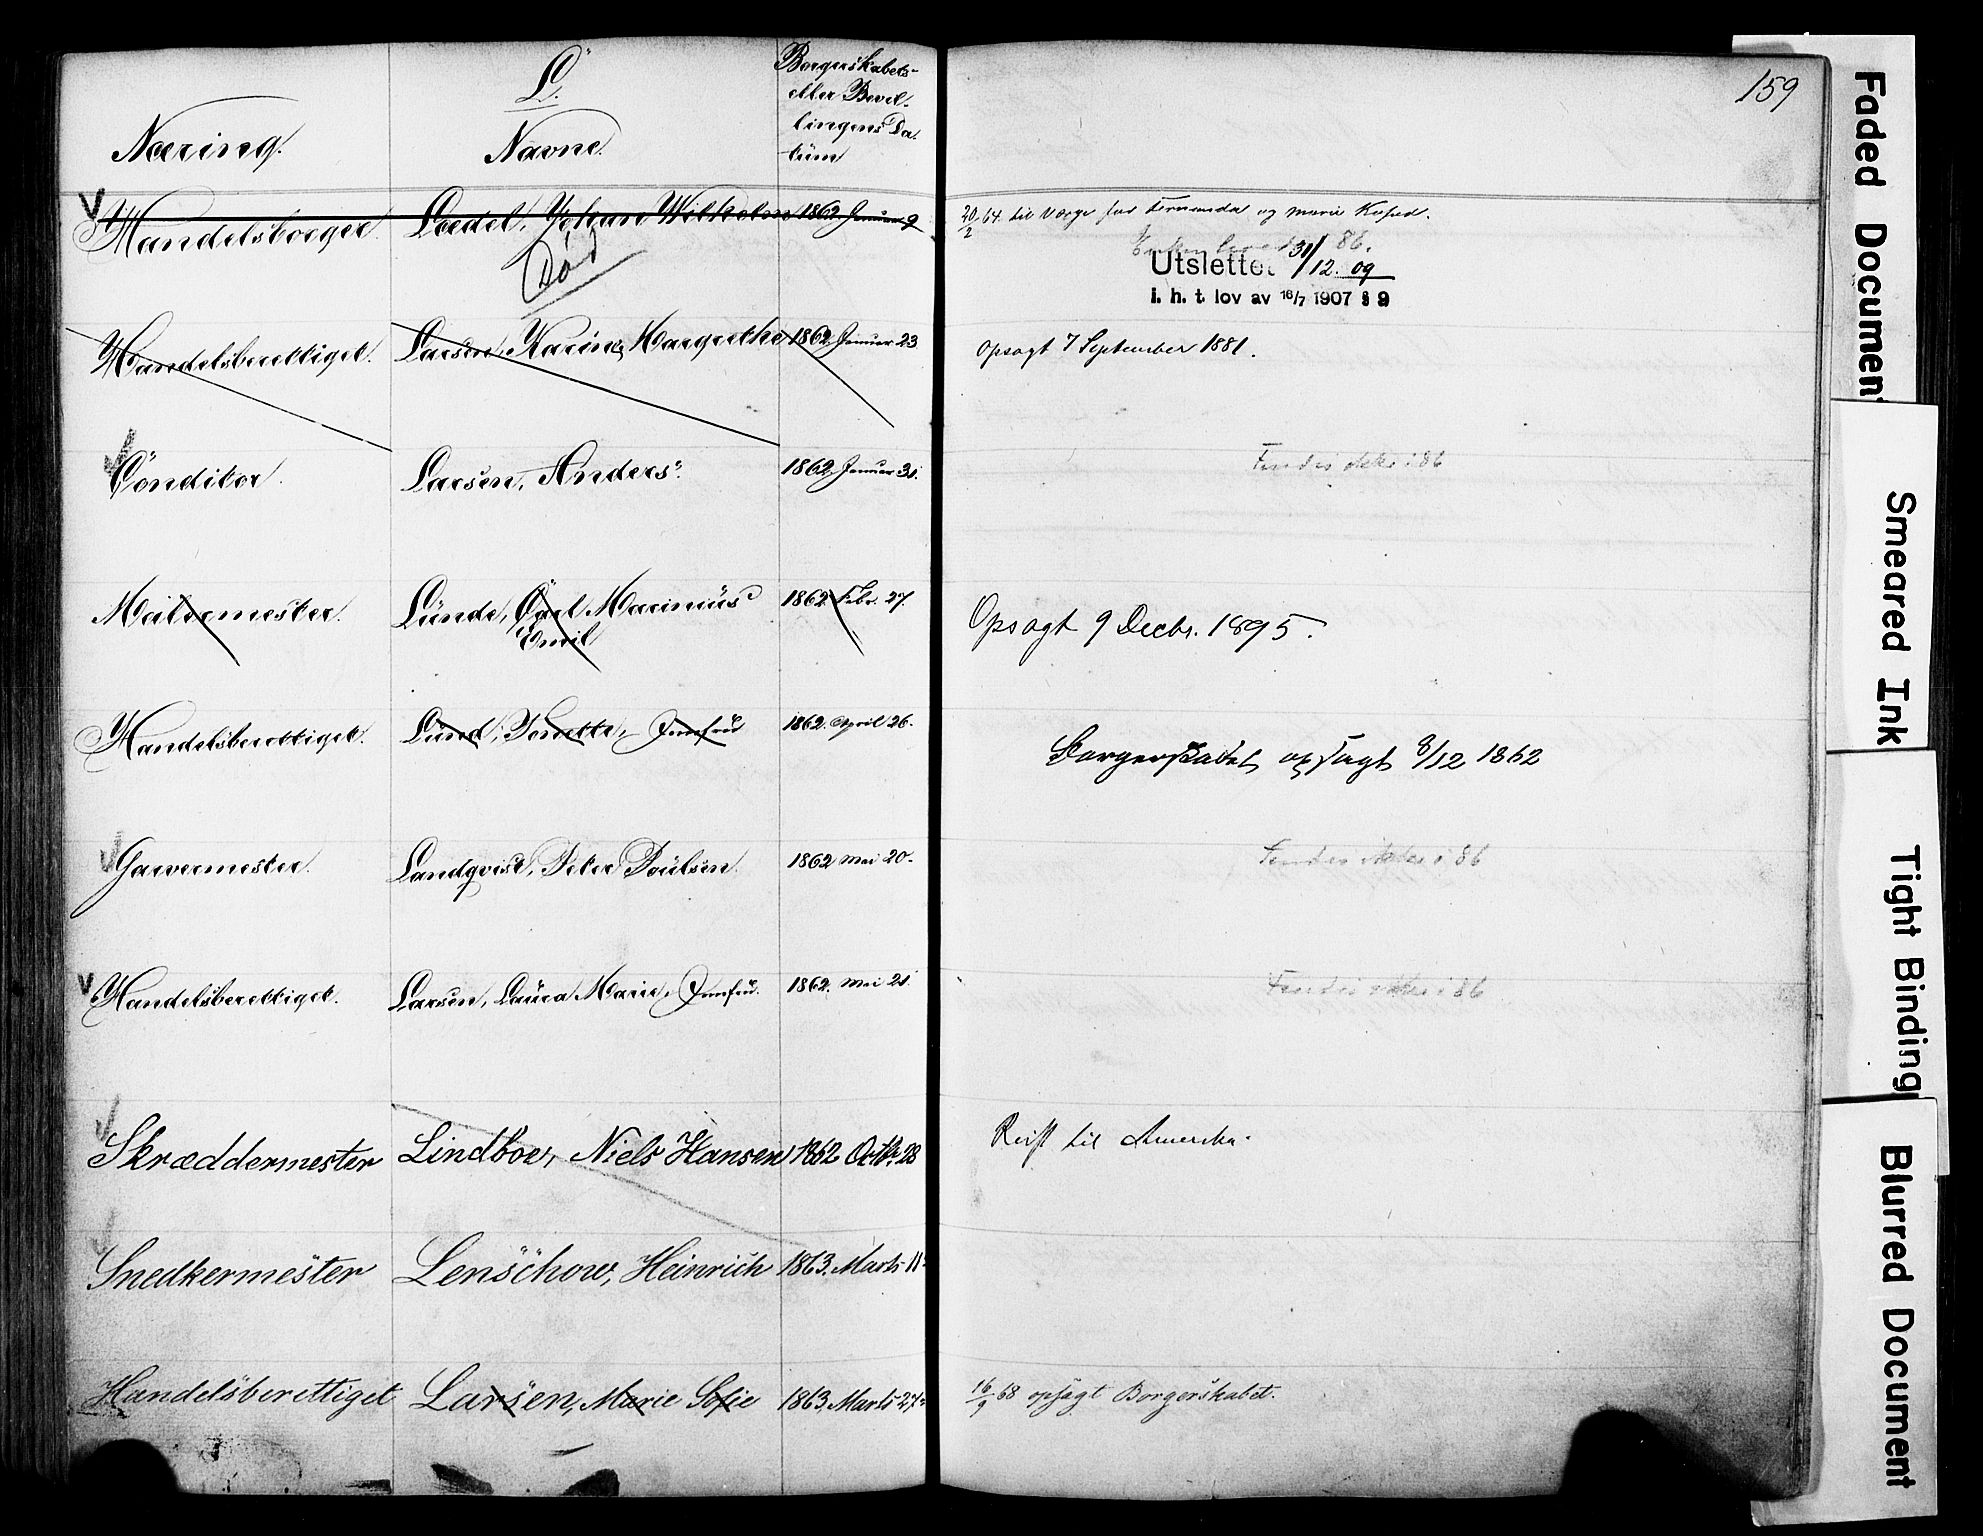 159
L.
Næring.
Navne.
Borgerskabets-
eller Bevil-
lingens Da-
tum
Handelsborger. Loedel, Johan Wilhelm 1862 Januar 9
Død
20/2 64 til Værge for Fernanda og Marie
86.
Utslettet 31/12. 09
i. h. t. lov av 16/7 1907 § 9
Handelsberettiget. Larsen, Karine Margrethe 1862 Januar 23
Opsagt 7 September 1881.
Conditor. Larsen, Anders. 1862 Januar 31.
Findes ikke i 86
Malermester. Lunde, Carl Marinius 1862 Febr. 27.
Emil
Opsagt 9 Decbr. 1895.
Handelsberettiget. Lund, Jonette, Jomfru 1862. April 26.
Borgerskabet opsagt 8/12 1862
Garvermester. Landqvist, Peter Poulsen. 1862 Mai 20.
Findes ikke i 86
Handelsberettiget. Larsen, Laura Marie, Jomfru. 1862. Mai 21.
Findes ikke i 86
Skræddermester Lindboe, Niels Hansen 1862 Octbr. 28
Reist til Amerika.
Snedkermester Lenschow, Heinrich 1863. Marts 11.
Handelsberettiget Larsen, Marie Sofie 1863. Marts 27.
16/9 68 opsagt Borgerskabet.
Faded Document
Smeared Ink
Tight Binding
Blurred Document